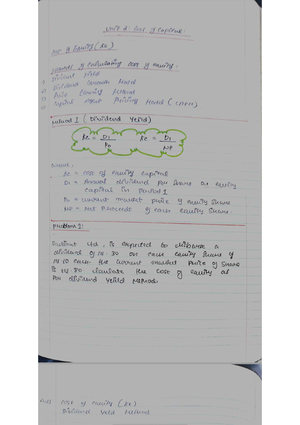 Unit 2: Cost of Capital:
cost of Equity (ke)
methods of calculating cost of equity:
1) Dividend Yield
2) Dividend Growth Model
3) Price Earning Method
4) Capital Asset Pricing Model (CAPM)
Method 1 (Dividend Yeild)
ke = D1 / P0    ke = D1 / NP
where,
ke = cost of equity capital
D1 = Annual dividend per share on equity
capital in Period 1
P0 = current market price of equity share
NP = Net proceeds of each equity share.
Problem 1:
Ltd, is expected to disburse a
dividend of ₹ 30 on each equity share of
₹ 10 each. The current market price of share
is ₹ 80 calculate the cost of equity as
per dividend Yeild Method.
cost of equity (ke)
Dividend Yeild Method